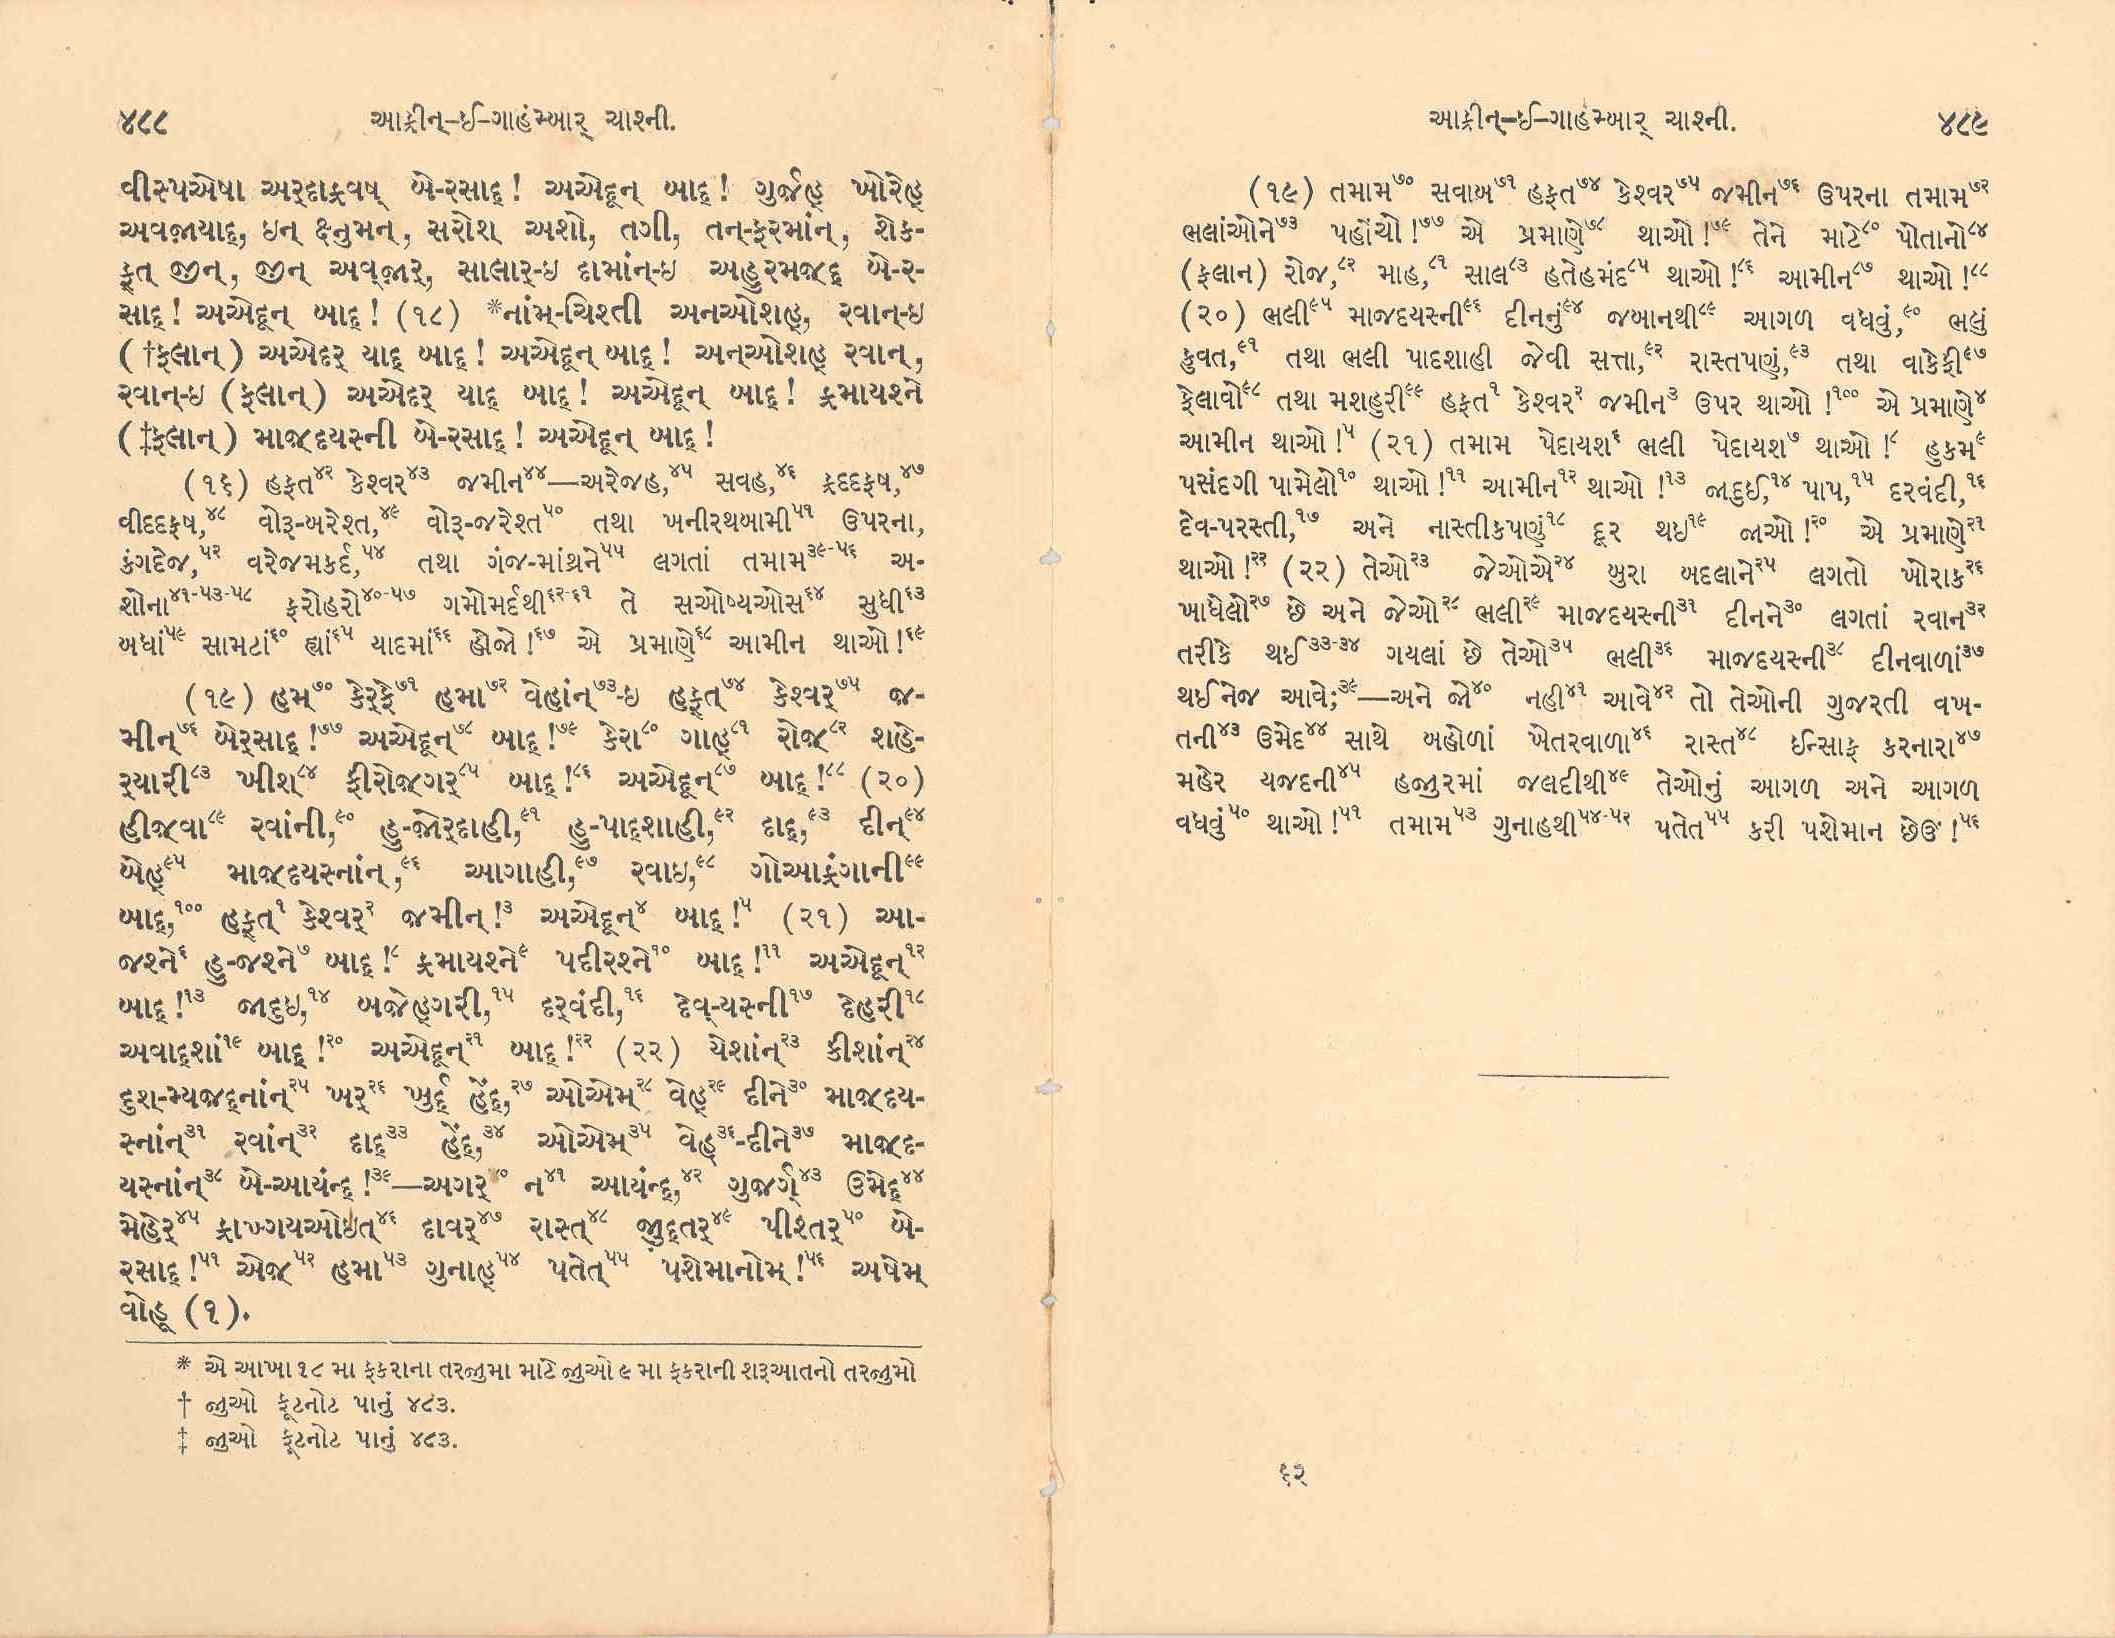 ૪૮૮ આફ્રીન્-ઈ-ગાહંમ્બાર્ ચાશ્ની.
વીસ્પએષા અર્દાફ્રવષ્ બે-રસાદ્! અએદૂન્ બાદ્! ગુર્જહ્ ખોરેહ્
અવજ઼ાયાદ્, ઇન્ ક્ષ્નુમન્, સરોશ્ અશો, તગી, તન્-ફરમાંન્, શેક-
ફત્ જીન્, જીન્ અવ્જ઼ાર્, સાલાર્-ઇ દામાંન્-ઇ અહુરમજ઼્દ્ બે-ર-
સાદ્! અએદૂન્ બાદ્! (૧૮) *નાંમ્-ચિશ્તી અનઓશહ્, રવાન્-ઇ
(†ફલાન્) અએદર્ યાદ્ બાદ્! અએદૂન્ બાદ્! અન્ઓશહ્ રવાન્,
રવાન્-ઇ (ફલાન્) અએદર્ યાદ્ બાદ્! અએદૂન્ બાદ્! ફ્રમાયશ્ને
(‡ફલાન્) માજ઼્દયસ્ની બે-રસાદ્! અએદૂન્ બાદ્!
(૧૬) હફત૪૨ કેશ્વર૪૩ જમીન૪૪—અરેજહ,૪૫ સવહ,૪૬ ફ્રદદફષ,૪૭
વીદદફષ,૪૮ વોરૂ-બરેશ્ત,૪૯ વોરૂ-જરેશ્ત૫૦ તથા ખનીરથબામી૫૧ ઉપરના,
કંગદેજ,૫૨ વરેજમકર્દ,૫૪ તથા ગંજ-માંથ્રને૫૫ લગતાં તમામ૩૯-૫૬ અ-
શોના૪૧-૫૩-૫૮ ફરોહરો૪૦-૫૭ ગમોમર્દથી૬૨-૬૧ તે સઓષ્યઓસ૬૪ સુધી૬૩
બધાં૫૯ સામટાં૬૦ હ્યાં૬૫ યાદમાં૬૬ હોજો!૬૭ એ પ્રમાણે૬૮ આમીન થાઓ!૬૯
(૧૯) હમ્૭૦ કેર્ફે૭૧ હમા૭૨ વેહાંન્૭૩-ઇ હફત્૭૪ કેશ્વર્૭૫ જ઼-
મીન્૭૬ બેર્સાદ્!૭૭ અએદૂન્૭૮ બાદ્!૭૯ કેરા૮૦ ગાહ્૮૧ રોજ઼્૮૨ શહે-
ર્યારી૮૩ ખીશ્૮૪ ફીરોજ઼્ગર્૮૫ બાદ્!૮૬ અએદૂન્૮૭ બાદ્!૮૮ (૨૦)
હીજ઼્વા૮૯ રવાંની,૯૦ હુ-જોર્દાહી,૯૧ હુ-પાદ્શાહી,૯૨ દાદ્,૯૩ દીન્૯૪
બેહ્૯૫ માજ઼્દયસ્નાંન્,૯૬ આગાહી,૯૭ રવાઇ,૯૮ ગોઆફ્રંગાની૯૯
બાદ્,૧૦૦ હફત્૧ કેશ્વર્૨ જ઼મીન્!૩ અએદૂન્૪ બાદ્!૫ (૨૧) આ-
જશ્ને૬ હુ-જશ્ને૭ બાદ્!૮ ફ્રમાયશ્ને૯ પદીરશ્ને૧૦ બાદ્!૧૧ અએદૂન્૧૨
બાદ્!૧૩ જાદુઇ,૧૪ બજ઼ેહ્ગરી,૧૫ દર્વંદી,૧૬ દેવ્-યસ્ની૧૭ દેહરી૧૮
અવાદ્શાં૧૯ બાદ્!૨૦ અએદૂન્૨૧ બાદ્!૨૨ (૨૨) યેશાંન્૨૩ કીશાંન્૨૪
દુશ્-મ્યજ઼્દ્નાંન્૨૫ ખર્૨૬ ખુર્દ્ હેંદ્,૨૭ ઓએમ્૨૮ વેહ્૨૯ દીને૩૦ માજ઼્દય-
સ્નાંન્૩૧ રવાંન્૩૨ દાદ્૩૩ હેંદ્,૩૪ ઓએમ્૩૫ વેહ્૩૬-દીને૩૭ માજ઼્દ-
યસ્નાંન્૩૮ બે-આયંન્દ્!૩૯—અગર્૪૦ ન૪૧ આયંન્દ્,૪૨ ગુજ઼ર્ગ્૪૩ ઉમેદ્૪૪
મેહેર્૪૫ ફ્રાખ્ગયઓઇત્૪૬ દાવર્૪૭ રાસ્ત્૪૮ જ઼ુદ્તર્૪૯ પીશ્તર્૫૦ બે-
રસાદ્!૫૧ એજ઼્૫૨ હમા૫૩ ગુનાહ્૫૪ પતેત્૫૫ પશેમાનોમ્!૫૬ અષેમ્
વોહૂ (૧).
* એ આખા ૧૮ મા ફકરાના તરજુમા માટે જુઓ ૯ મા ફકરાની શરૂઆતનો તરજુમો
† જુઓ ફૂટનોટ પાનું ૪૮૩.
‡ જુઓ ફૂટનોટ પાનું ૪૮૩.
આફ્રીન્-ઈ-ગાહંમ્બાર્ ચાશ્ની. ૪૮૯
(૧૯) તમામ૭૦ સવાબ૭૧ હફત૭૪ કેશ્વર૭૫ જમીન૭૬ ઉપરના તમામ૭૨
ભલાંઓને૭૩ પહોંચો!૭૭ એ પ્રમાણે૭૮ થાઓ!૭૯ તેને માટે૮૦ પોતાનો૮૪
(ફલાન) રોજ,૮૨ માહ,૮૧ સાલ૮૩ ફતેહમંદ૮૫ થાઓ!૮૬ આમીન૮૭ થાઓ!૮૮
(૨૦) ભલી૯૫ માજદયસ્ની૯૬ દીનનું૯૪ જબાનથી૮૯ આગળ વધવું,૯૦ ભલું
કુવત,૯૧ તથા ભલી પાદશાહી જેવી સત્તા,૯૨ રાસ્તપણું,૯૩ તથા વાકેફી૯૭
ફેલાવો૯૮ તથા મશહુરી૯૯ હફત૧ કેશ્વર૨ જમીન૩ ઉપર થાઓ!૧૦૦ એ પ્રમાણે૪
આમીન થાઓ!૫ (૨૧) તમામ પેદાયશ૬ ભલી પેદાયશ૭ થાઓ!૮ હુકમ૯
પસંદગી પામેલો૧૦ થાઓ!૧૧ આમીન૧૨ થાઓ!૧૩ જાદુઈ,૧૪ પાપ,૧૫ દરવંદી,૧૬
દેવ-પરસ્તી,૧૭ અને નાસ્તીકપણું૧૮ દૂર થઇ૧૯ જાઓ!૨૦ એ પ્રમાણે૨૧
થાઓ!૨૨ (૨૨) તેઓ૨૩ જેઓએ૨૪ બુરા બદલાને૨૫ લગતો ખોરાક૨૬
ખાધેલો૨૭ છે અને જેઓ૨૮ ભલી૨૯ માજદયસ્ની૩૧ દીનને૩૦ લગતાં રવાન૩૨
તરીકે થઈ૩૩-૩૪ ગયલાં છે તેઓ૩૫ ભલી૩૬ માજદયસ્ની૩૮ દીનવાળાં૩૭
થઈનેજ આવે;૩૯—અને જો૪૦ નહી૪૧ આવે૪૨ તો તેઓની ગુજરતી વખ-
તની૪૩ ઉમેદ૪૪ સાથે બહોળાં ખેતરવાળા૪૬ રાસ્ત૪૮ ઈન્સાફ કરનારા૪૭
મહેર યજદની૪૫ હજુરમાં જલદીથી૪૯ તેઓનું આગળ અને આગળ
વધવું૫૦ થાઓ!૫૧ તમામ૫૩ ગુનાહથી૫૪-૫૨ પતેત૫૫ કરી પશેમાન છેઉં!૫૬
૬૨